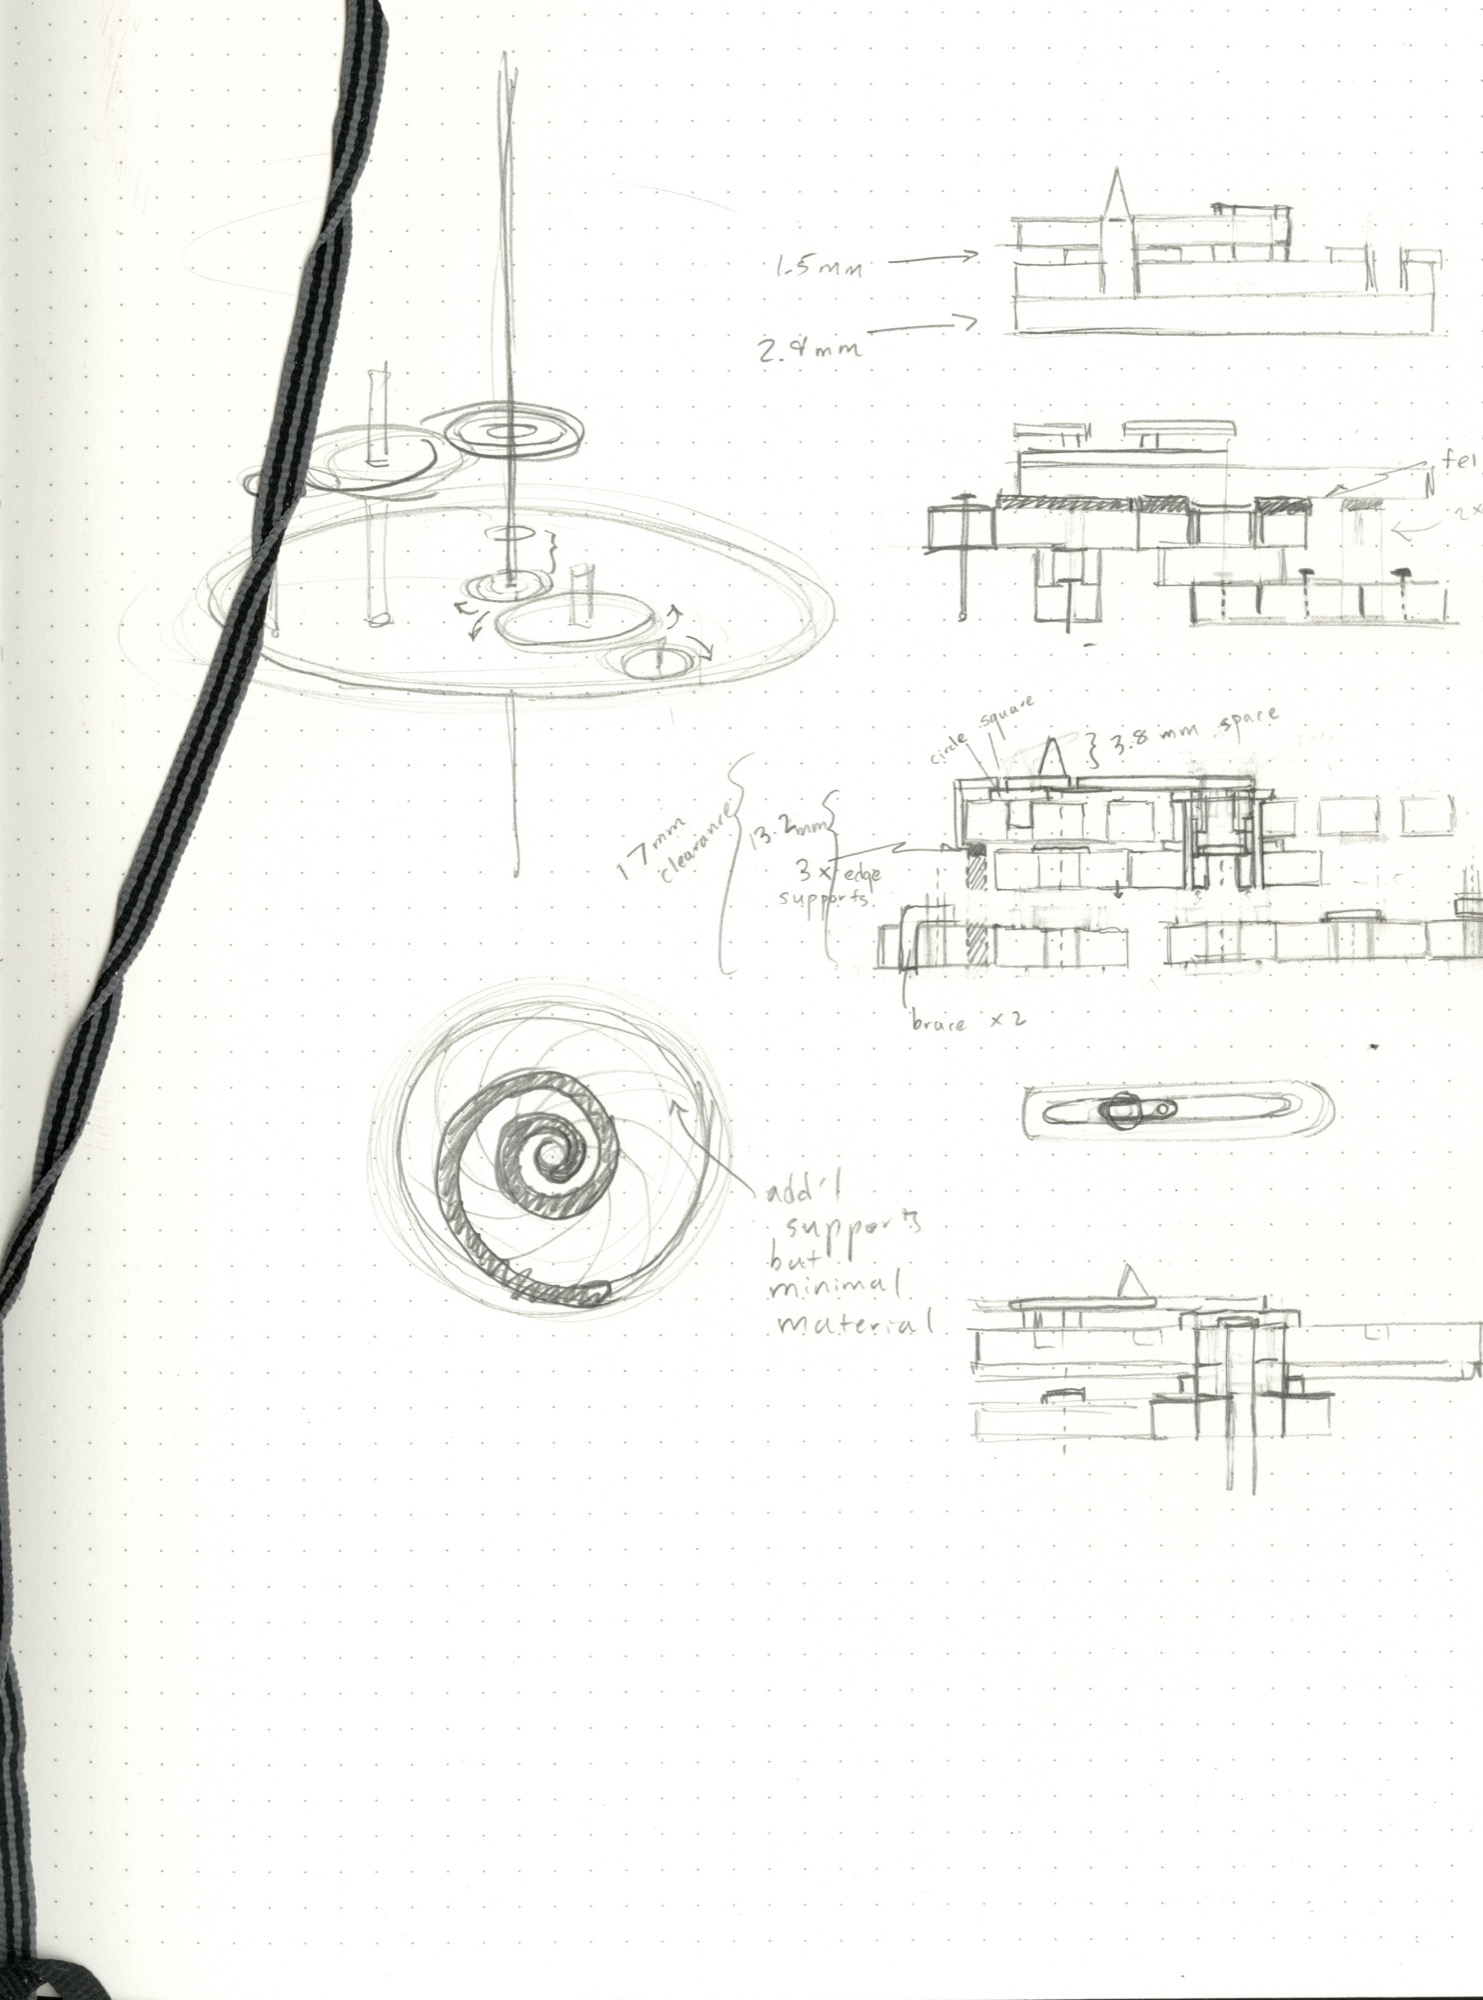 1.5 mm
2.8 mm
fel
2x
circle
square
3.8 mm space
17 mm
clearance
13.2 mm
3 x edge
supports
brace x2
add'l
supports
but
minimal
material